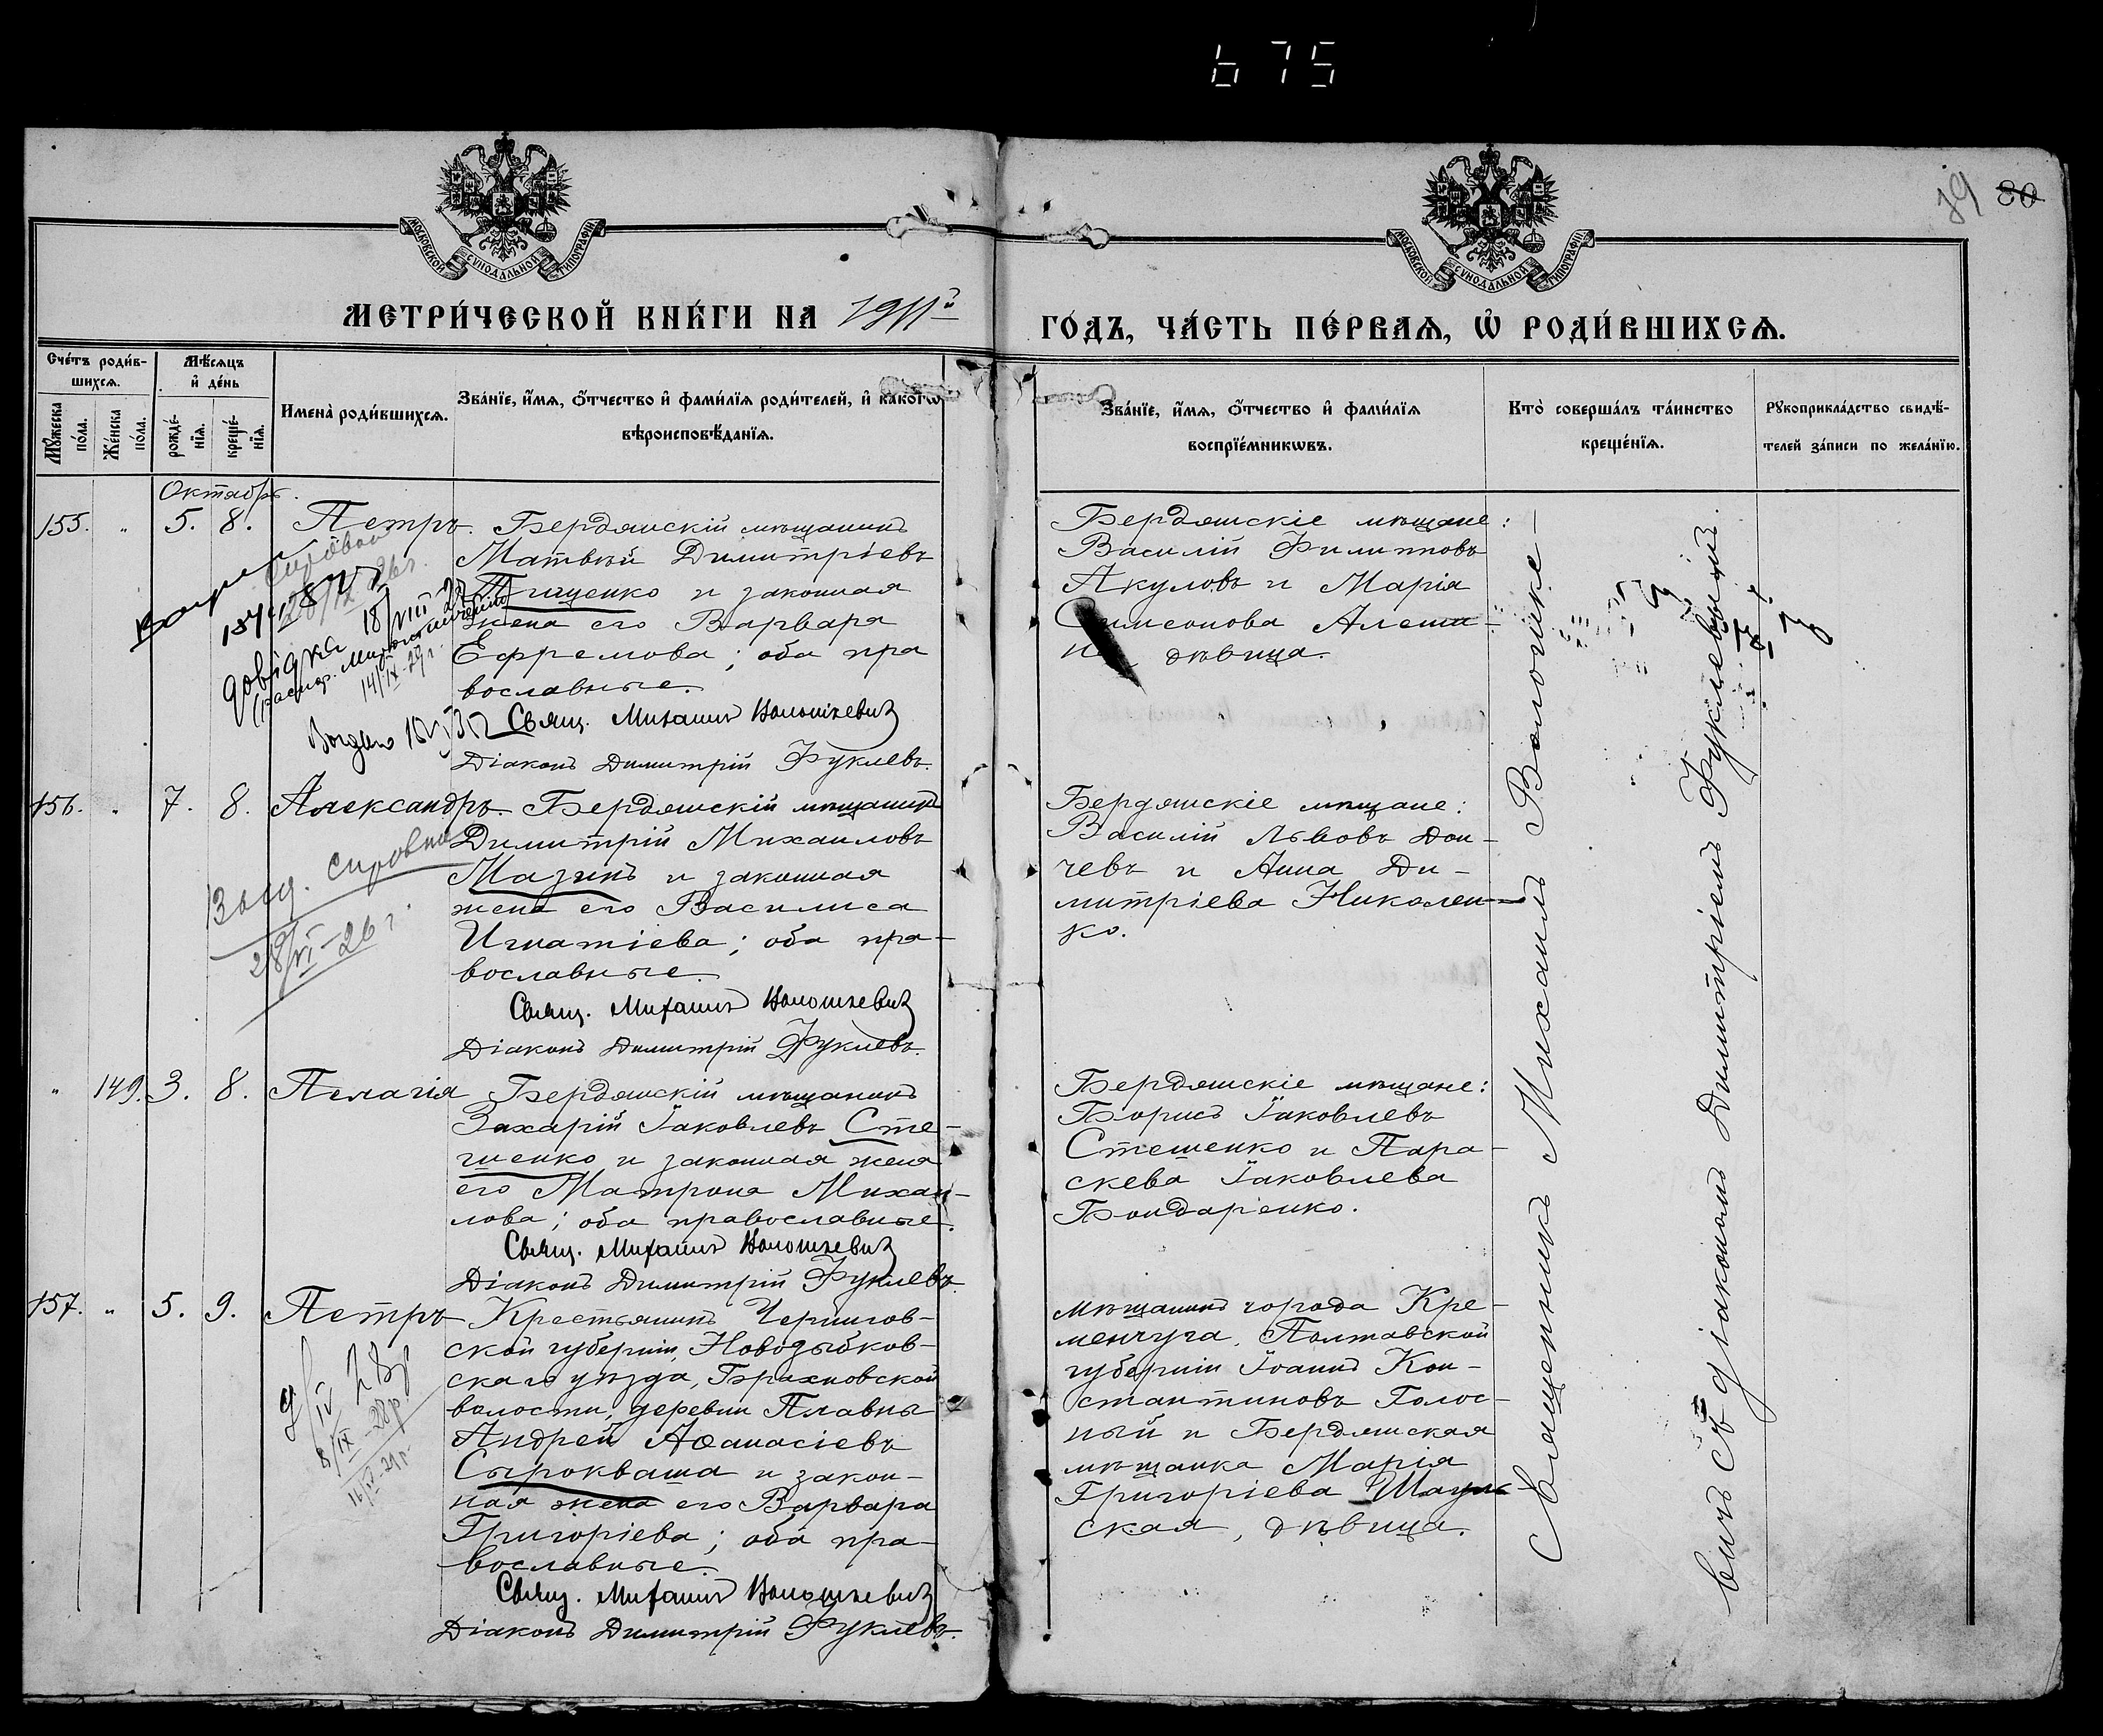 675
79 80
МОСКОВСКОЙ СѴНОДАЛЬНОЙ ТИПОГРАФІИ
МОСКОВСКОЙ СѴНОДАЛЬНОЙ ТИПОГРАФІИ
МЕТРИ́ЧЕСКОЙ КНИ́ГИ НА 1911й
ГО́ДЪ, ЧА́СТЬ ПЕ́РВАѦ, Ѡ҆ РОДИ́ВШИХСѦ.
Сче́тъ роди́в-
шихсѧ.
Мꙋ́жеска по́ла.
Же́нска по́ла.
Мѣ́сѧцъ и҆ де́нь
рожде́-нїѧ.
креще́-нїѧ.
Имена̀ роди́вшихсѧ.
Зва́нїе, и҆́мѧ, ѻ҆́тчество и҆ фами́лїѧ роди́телей, и҆ како́гѡ
вѣроисповѣ́данїѧ.
Зва́нїе, и҆́мѧ, ѻ҆́тчество и҆ фами́лїѧ
воспрїе́мникѡвъ.
Кто̀ соверша́лъ та́инство
креще́нїѧ.
Рꙋкоприкла́дство свидѣ́-
телей за́писи по жела́нїю.
Октябрь.
155. „ 5. 8. Петръ. Бердянскій мѣщанинъ
Матвѣй Димитріевъ
Тищенко и законная
жена его Варвара
Ефремова; оба пра
вославные.
Свящ. Михаилъ Волошкевич
Діаконъ Димитрій Фуклевъ.
довідка 18/VIII
14/IX-29 г.
Бердянскіе мѣщане:
Василій Филипповъ
Акуловъ и Марія
Симеонова Алеши-
на дѣвица.
156. „ 7. 8. Александръ. Бердянскій мѣщанинъ
Димитрій Михаиловъ
Мазинъ и законная
жена его Василиса
Игнатіева; оба пра-
вославные.
Свящ. Михаилъ Волошкевич
Діаконъ Димитрій Фуклевъ.
28/VI-26 г.
Бердянскіе мѣщане:
Василій Львовъ Дон-
чевъ и Анна Ди-
митріева Николен-
ко.
„ 149. 3. 8. Пелагія Бердянскій мѣщанинъ
Захарій Іаковлевъ Сте-
шенко и законная жена
его Матрона Михаи-
лова; оба православные.
Свящ. Михаилъ Волошкевич
Діаконъ Димитрій Фуклевъ.
Бердянскіе мѣщане:
Борисъ Іаковлевъ
Стешенко и Пара-
скева Іаковлева
Бондаренко.
157. „ 5. 9. Петръ Крестьянинъ Чернигов-
ской губерніи, Новозыбков-
скаго уѣзда, Брахловской
волости, деревни Плавны
Андрей Аѳанасіевъ
Сырокваша и закон-
ная жена его Варвара
Григоріева; оба пра-
вославные.
Свящ. Михаилъ Волошкевич
Діаконъ Димитрій Фуклевъ.
8/IX-28р.
Мѣщанинъ города Кре-
менчуга, Полтавской
губерніи Іоаннъ Кон-
стантиновъ Голос-
ный и Бердянская
мѣщанка Марія
Григоріева
ская, дѣвица.
Священникъ Михаилъ Волошке-
вичъ съ діакономъ Димитріемъ Фуклевымъ.